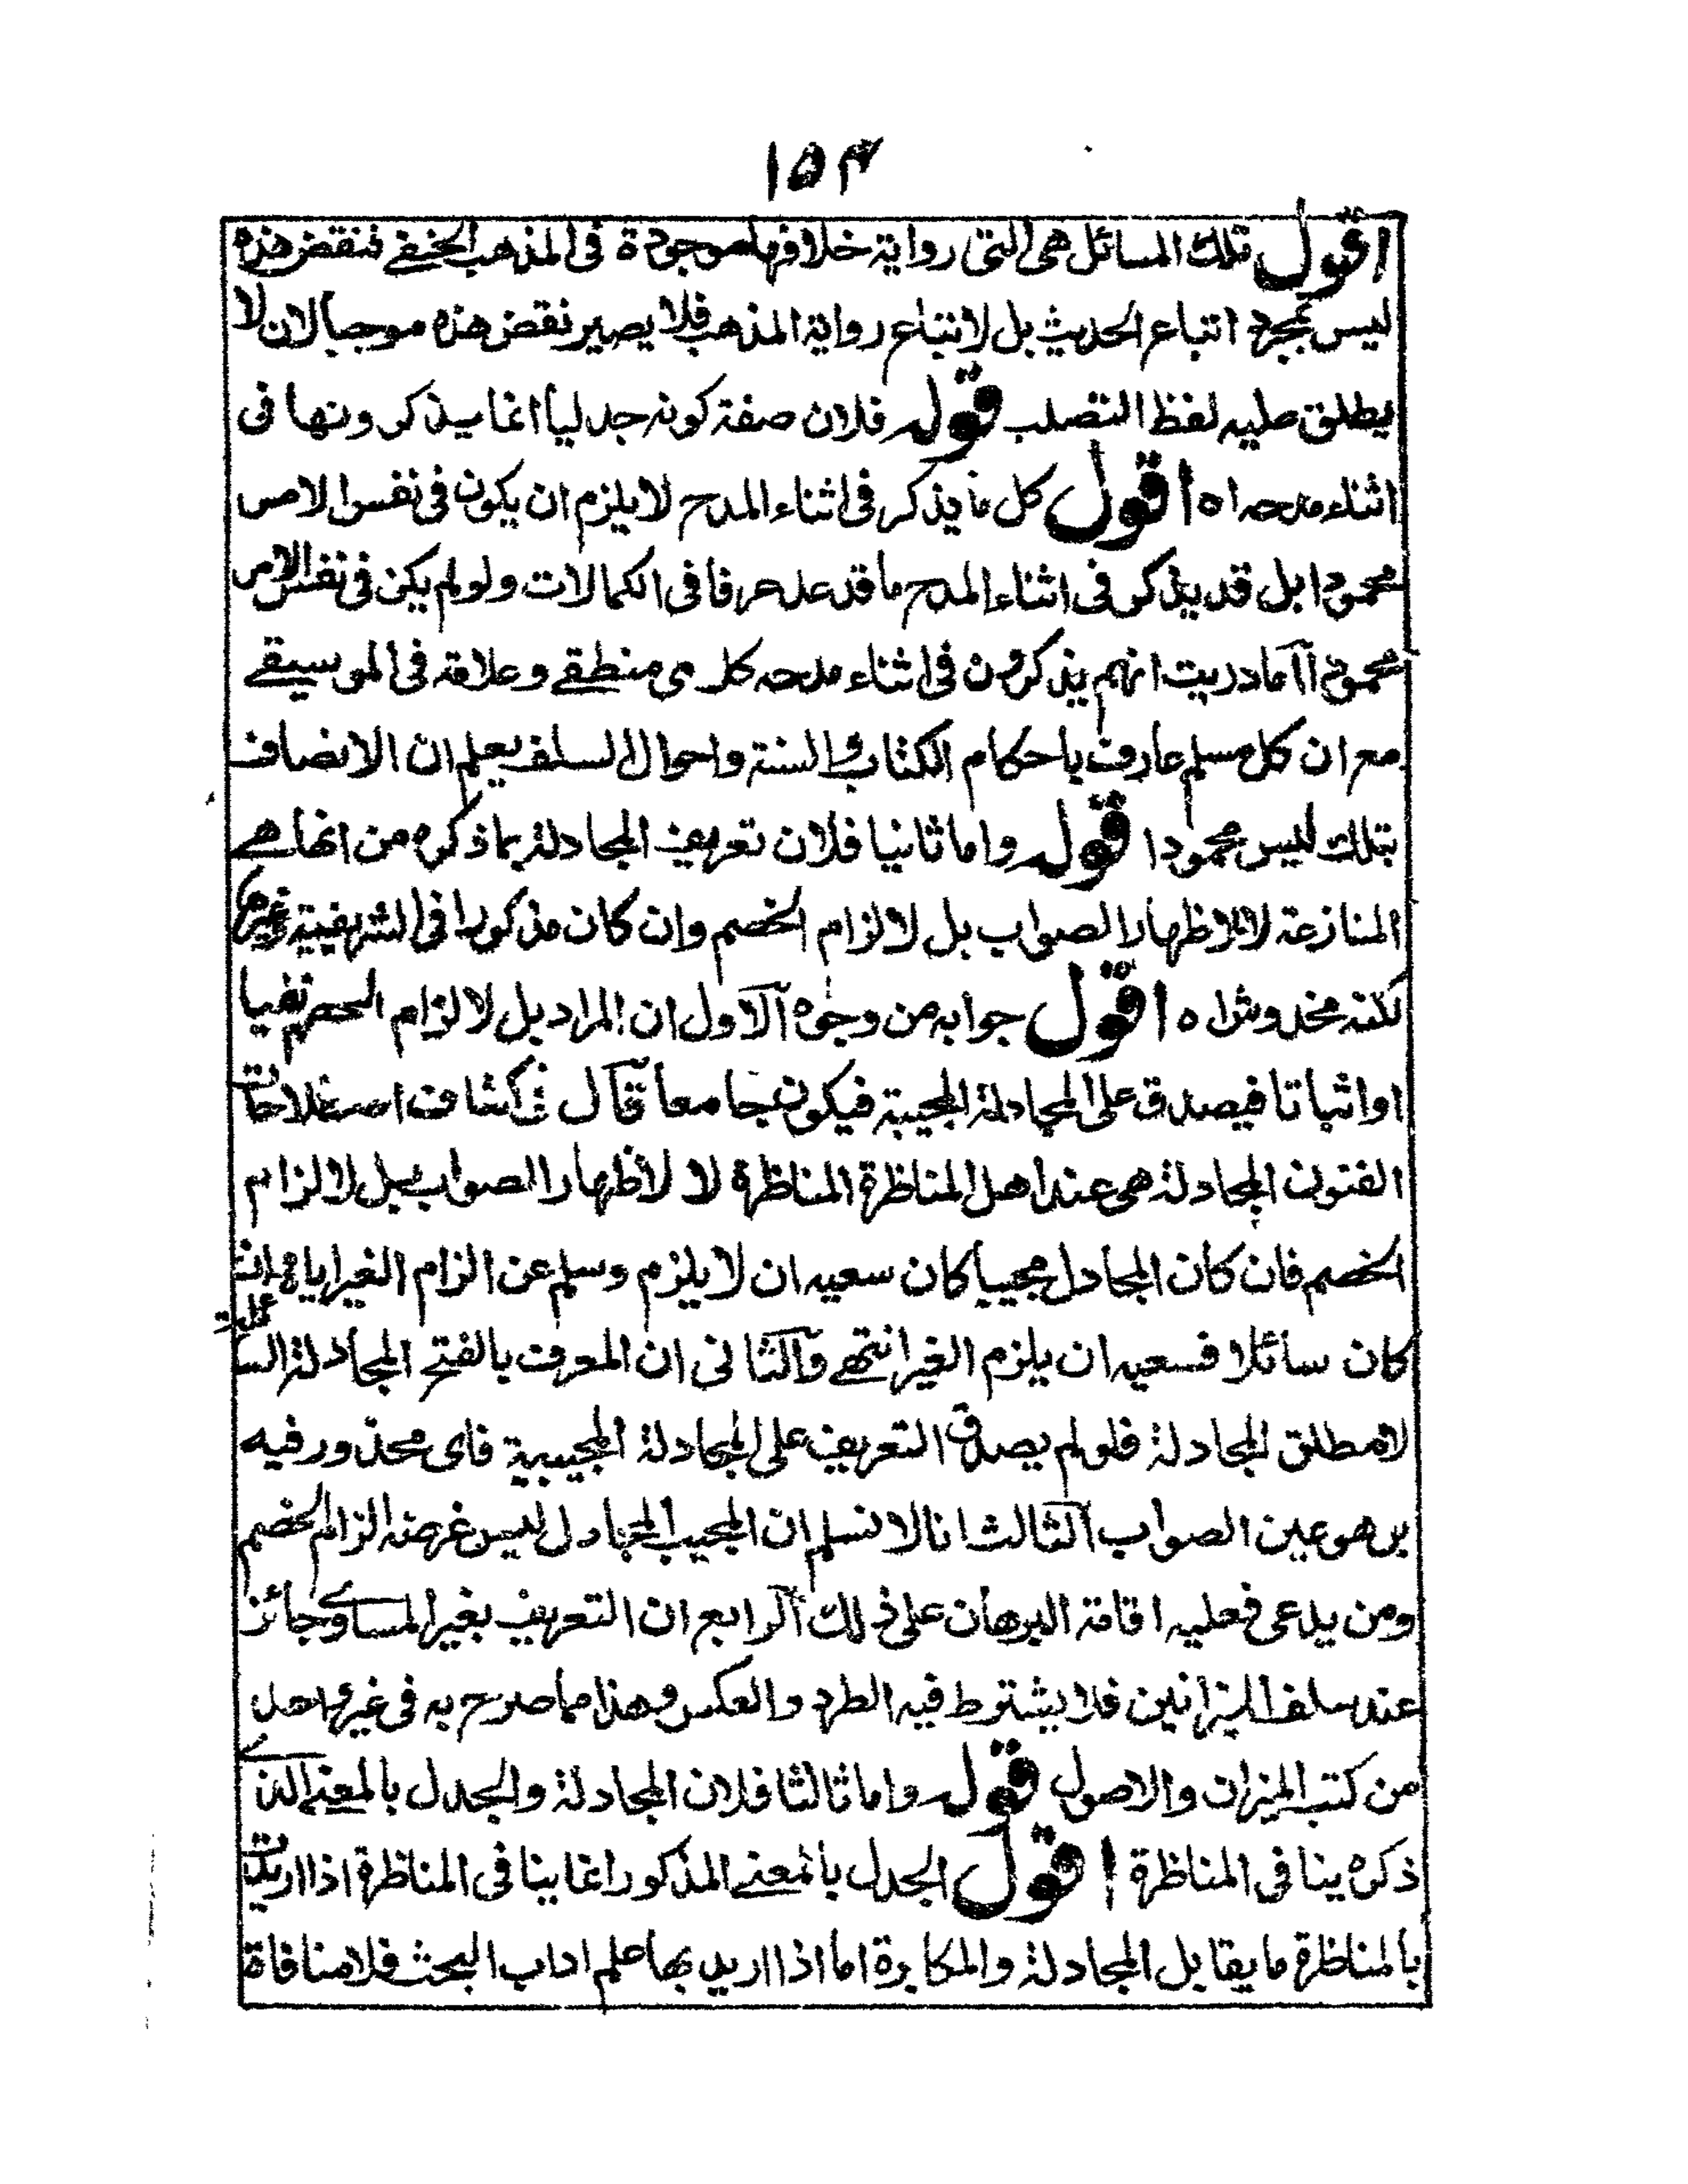 ۱۵۴
اقول تلك المسائل هى التى رواية خلافها موجودة فى المذهب الحنفے فنقض هذه
ليس بمجرد اتباع الحديث بل لاتباع رواية المذهب فلا يصير نقض هذه موجبا لان لا
يطلق عليه لفظ التصلب قوله فلان صفة كونه جدليا انما يذكرونها فى
اثناء مدحه اه اقول كل ما يذكر فى اثناء المدح لا يلزم ان يكون فى نفس الامر
محمودا بل قد يذكر فى اثناء المدح ما قد عد عرفا فى الكمالات ولو لم يكن فى نفس الامر
محمودا آما دريت انهم يذكرون فى اثناء مدحه كل منطقے وعلاقة فى الموسيقے
مع ان كل مسلم عارف باحكام الكتاب والسنة واحوال السلف يعلم ان الاتصاف
بتلك ليس محمودا قوله واما ثانيا فلان تعريف المجادلة بما ذكره من انها هے
المنازعة لا لاظهار الصواب بل لالزام الخصم وان كان مذكورا فى الشريفية وغيرها
لكنه مخدوش اه اقول جوابه من وجوه آلاول ان المراد بل لالزام الخصم نفيا
او اثباتا فيصدق على المجادلة المجيبية فيكون جامعا قآل فى كشاف اصطلاحات
الفنون المجادلة هى عند اهل المناظرة المناظرة لا لاظهار الصواب بل لالزام
الخصم فان كان المجادل مجيبا كان سعيه ان لا يلزم وسلم عن الزام الغير اياه وان
كان سائلا فسعيه ان يلزم الغير انتهے وآلثانى ان المعرف بالفتح المجادلة السائلية
لا مطلق المجادلة فلو لم يصدق التعريف على المجادلة المجيبية فاى محذور فيه
بل هو عين الصواب آلثالث انا لا نسلم ان المجيب المجادل ليس غرضه الزام الخصم
ومن يدعى فعليه اقامة البرهان على ذلك آلرابع ان التعريف بغير المساوے جائز
عند سلف الميزانيين فلا يشترط فيه الطرد والعكس وهذا مما صرح به فى غير واحد
من كتب الميزان والاصول قوله واما ثالثا فلان المجادلة والجدل بالمعنے الذے
ذكره ينافى المناظرة اقول الجدل بالمعنے المذكور انما ينافى المناظرة اذا اريدت
بالمناظرة ما يقابل المجادلة والمكابرة اما اذا اريد بها علم اداب البحث فلا منافاة